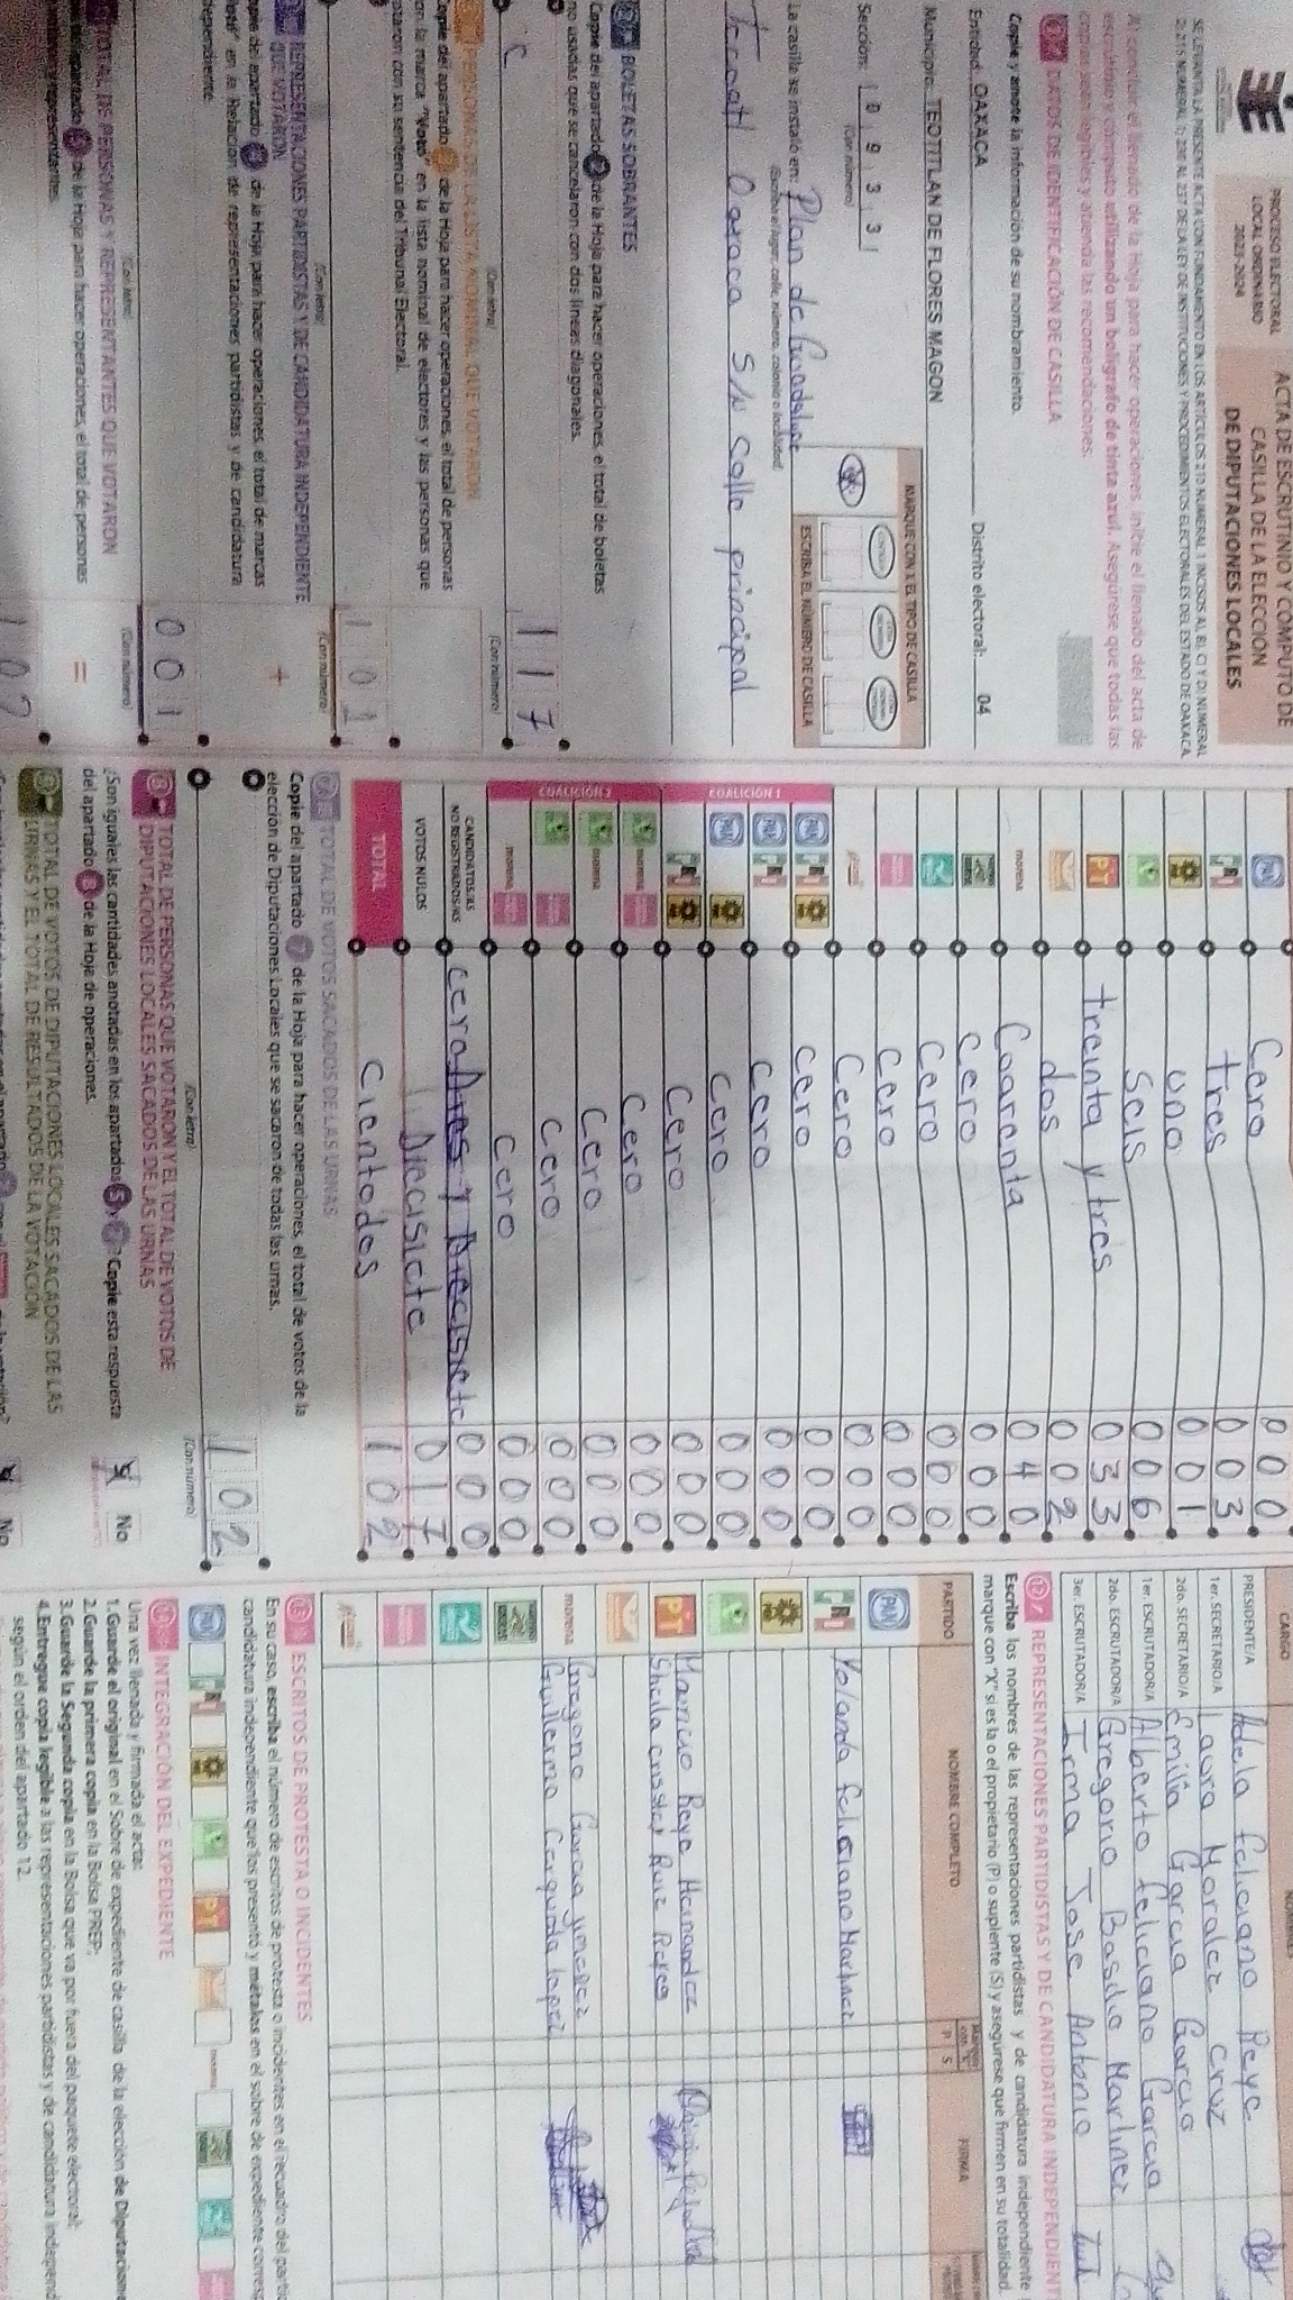 PROCESO ELECTORAL
LOCAL ORDINARIO
2023-2024
ACTA DE ESCRUTINIO Y CÓMPUTO DE
CASILLA DE LA ELECCIÓN
DE DIPUTACIONES LOCALES
SE LEVANTA LA PRESENTE ACTA CON FUNDAMENTO EN LOS ARTÍCULOS
Al concluir el llenado de la Hoja para hacer operaciones, inicie el llenado del acta de
escrutinio y cómputo utilizando un bolígrafo de tinta azul. Asegúrese que todas las
copias sean legibles y atienda las recomendaciones.
DATOS DE IDENTIFICACIÓN DE CASILLA
Copie y anote la información de su nombramiento.
Entidad: OAXACA Distrito electoral: 04
Municipio: TEOTITLAN DE FLORES MAGON
Sección: 0 9 3 3
(Con número)
MARQUE CON X EL TIPO DE CASILLA
ESCRIBA EL NÚMERO DE CASILLA
La casilla se instaló en: Plan de Guadalupe
(Escriba el lugar, calle, número, colonia o localidad)
Oaxaca S/N calle principal
BOLETAS SOBRANTES
Copie del apartado 2 de la Hoja para hacer operaciones, el total de boletas
no usadas que se cancelaron con dos líneas diagonales.
117
(Con letra) (Con número)
PERSONAS DE LA LISTA NOMINAL QUE VOTARON
Copie del apartado de la Hoja para hacer operaciones, el total de personas
con la marca "Votó" en la lista nominal de electores y las personas que
votaron con su sentencia del Tribunal Electoral.
101
(Con letra) (Con número)
REPRESENTACIONES PARTIDISTAS Y DE CANDIDATURA INDEPENDIENTE
QUE VOTARON
Copie del apartado 4 de la Hoja para hacer operaciones, el total de marcas
en la Relación de representaciones partidistas y de candidatura
independiente.
+
001
(Con letra) (Con número)
TOTAL DE PERSONAS Y REPRESENTANTES QUE VOTARON
de la Hoja para hacer operaciones, el total de personas
=
102
PAN Cero 000
PRI tres 003
PRD uno 001
Seis 006
PT treinta y tres 033
dos 002
morena Coarenta 040
cero 000
cero 000
cero 000
Cero 000
COALICIÓN 1
PAN PRI PRD cero 000
PAN PRI cero 000
PAN PRD cero 000
PRI PRD cero 000
COALICIÓN 2
morena cero 000
morena cero 000
cero 000
morena cero 000
CANDIDATOS/AS
NO REGISTRADOS/AS cero tres y Diecisiete 000
VOTOS NULOS Diecisiete 017
TOTAL cientodos 102
TOTAL DE VOTOS SACADOS DE LAS URNAS
Copie del apartado de la Hoja para hacer operaciones, el total de votos de la
elección de Diputaciones Locales que se sacaron de todas las urnas.
102
(Con letra) (Con número)
8 TOTAL DE PERSONAS QUE VOTARON Y EL TOTAL DE VOTOS DE
DIPUTACIONES LOCALES SACADOS DE LAS URNAS
¿Son iguales las cantidades anotadas en los apartados 5 y ? Copie esta respuesta
del apartado 8 de la Hoja de operaciones.
No
TOTAL DE VOTOS DE DIPUTACIONES LOCALES SACADOS DE LAS
URNAS Y EL TOTAL DE RESULTADOS DE LA VOTACIÓN
No
CARGO
PRESIDENTE/A Adela feliciano Reye
1er. SECRETARIO/A Laura Morales Cruz
2do. SECRETARIO/A Emilia Garcia Garcia
1er. ESCRUTADOR/A Alberto feliciano Garcia
2do. ESCRUTADOR/A Gregorio Basilio Martinez
3er. ESCRUTADOR/A Irma Jose Antonio
12 REPRESENTACIONES PARTIDISTAS Y DE CANDIDATURA INDEPENDIENTE
Escriba los nombres de las representaciones partidistas y de candidatura independiente
marque con "X" si es la o el propietario (P) o suplente (S) y asegúrese que firmen en su totalidad.
PARTIDO NOMBRE COMPLETO P S FIRMA
PAN
PRI Yolanda feliciano Martinez
PRD
PT Mauricio Reye Hernandez
Sheila Reyes
morena Gregorio Garcia
Guillermo Cerqueda lopez
13 ESCRITOS DE PROTESTA O INCIDENTES
En su caso, escriba el número de escritos de protesta o incidentes en el recuadro del partido
candidatura independiente que los presentó y métalos en el sobre de expediente
PAN PRI PRD PT morena
INTEGRACIÓN DEL EXPEDIENTE
Una vez llenada y firmada el acta:
1. Guarde el original en el Sobre de expediente de casilla de la elección de Diputaciones
2. Guarde la primera copia en la Bolsa PREP;
3. Guarde la Segunda copia en la Bolsa que va por fuera del paquete electoral;
4. Entregue copia legible a las representaciones partidistas y de candidatura independ
según el orden del apartado 12.